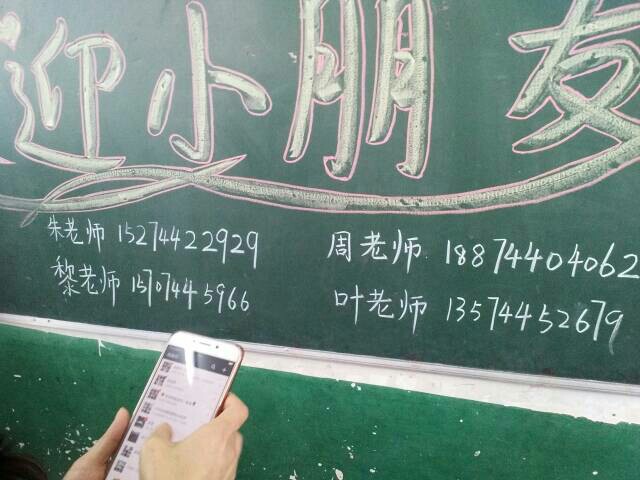 迎小朋友
朱老师 15274422929
周老师 18874404062
黎老师 15707445966
叶老师 13574452679